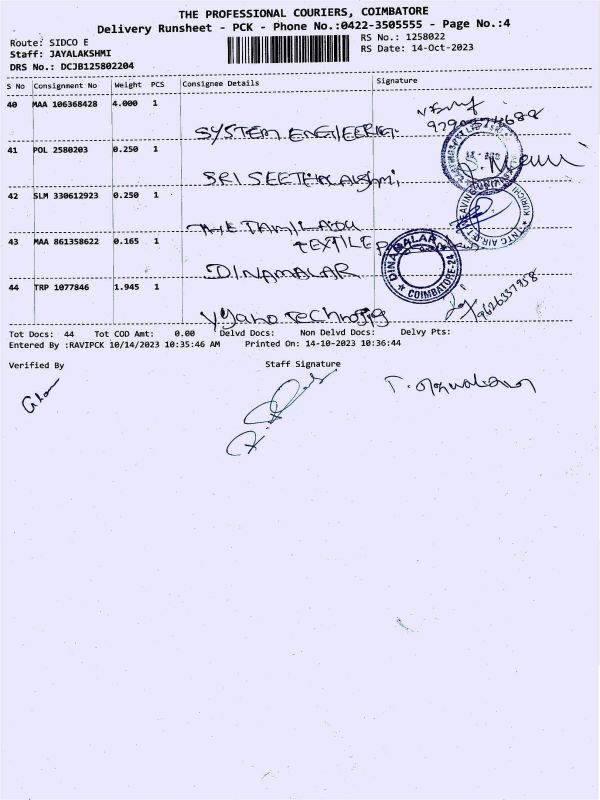 THE PROFESSIONAL COURIERS, COIMBATORE
Delivery Runsheet - PCK - Phone No.:0422-3505555 - Page No.:4
Route: SIDCO E
RS No.: 1258022
Staff: JAYALAKSHMI
RS Date: 14-Oct-2023
DRS No.: DCJB125802204
S No Consignment No Weight PCS Consignee Details Signature
40 MAA 106368428 4.000 1
SYSTEM ENGIEERIG.
41 POL 2580203 0.250 1
SRI SEETHALAKSHMI,
42 SLM 330612923 0.250 1
THE TAMILNADU
TEXTILE
43 MAA 861358622 0.165 1
DINAMALAR
DINAMALAR
COIMBATORE-24
44 TRP 1077846 1.945 1
9626337958
Tot Docs: 44 Tot COD Amt: 0.00 Delvd Docs: Non Delvd Docs: Delvy Pts:
Entered By :RAVIPCK 10/14/2023 10:35:46 AM Printed On: 14-10-2023 10:36:44
Verified By Staff Signature